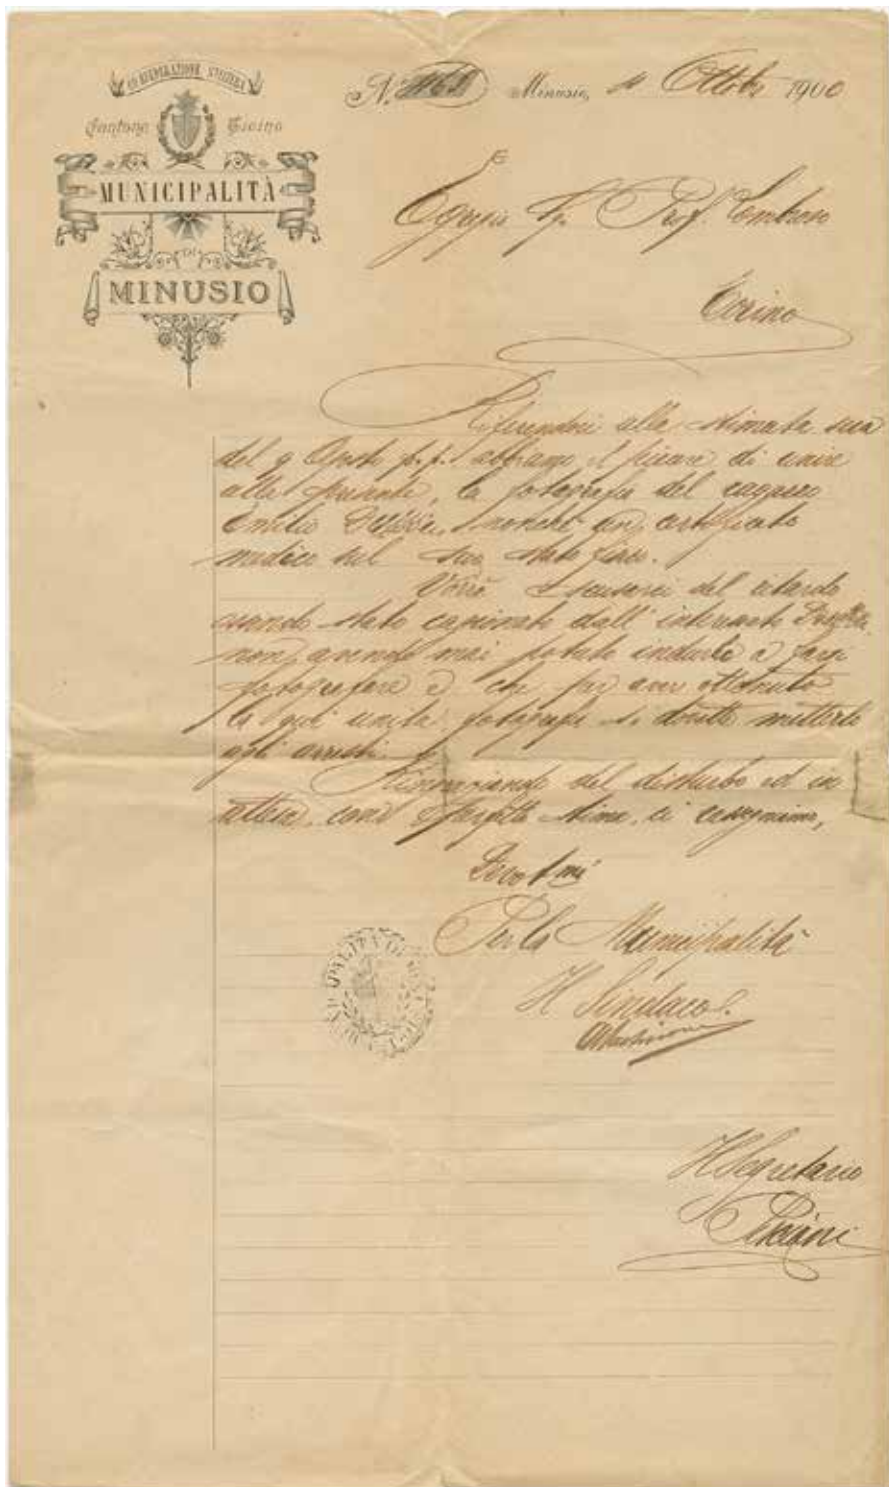 CONFEDERAZIONE SVIZZERA
Cantone Ticino
MUNICIPALITÀ
DI
MINUSIO
N. Minusio, Ottobr 1900
Egregio Sg. Prof. Lombroso
Torino
Riferendoci alla stimata sua
del 9 Agosto p.p. abbiamo il piacere di unire
alla presente, la fotografia del ragazzo
Emilio nonchè un certificato
medico sul suo stato fisico.
Vorrà scusarci del ritardo
essendo stato cagionato dall'interessato
non avendo mai potuto indurlo a farsi
fotografare e che per aver ottenuto
la qui unita fotografia si dovette metterlo
agli arresti.
Ringraziando del disturbo ed in
attesa, con perfetta stima, ci rassegniamo,
Devotmi
Per la Municipalità
Il Sindaco
Il Segretario